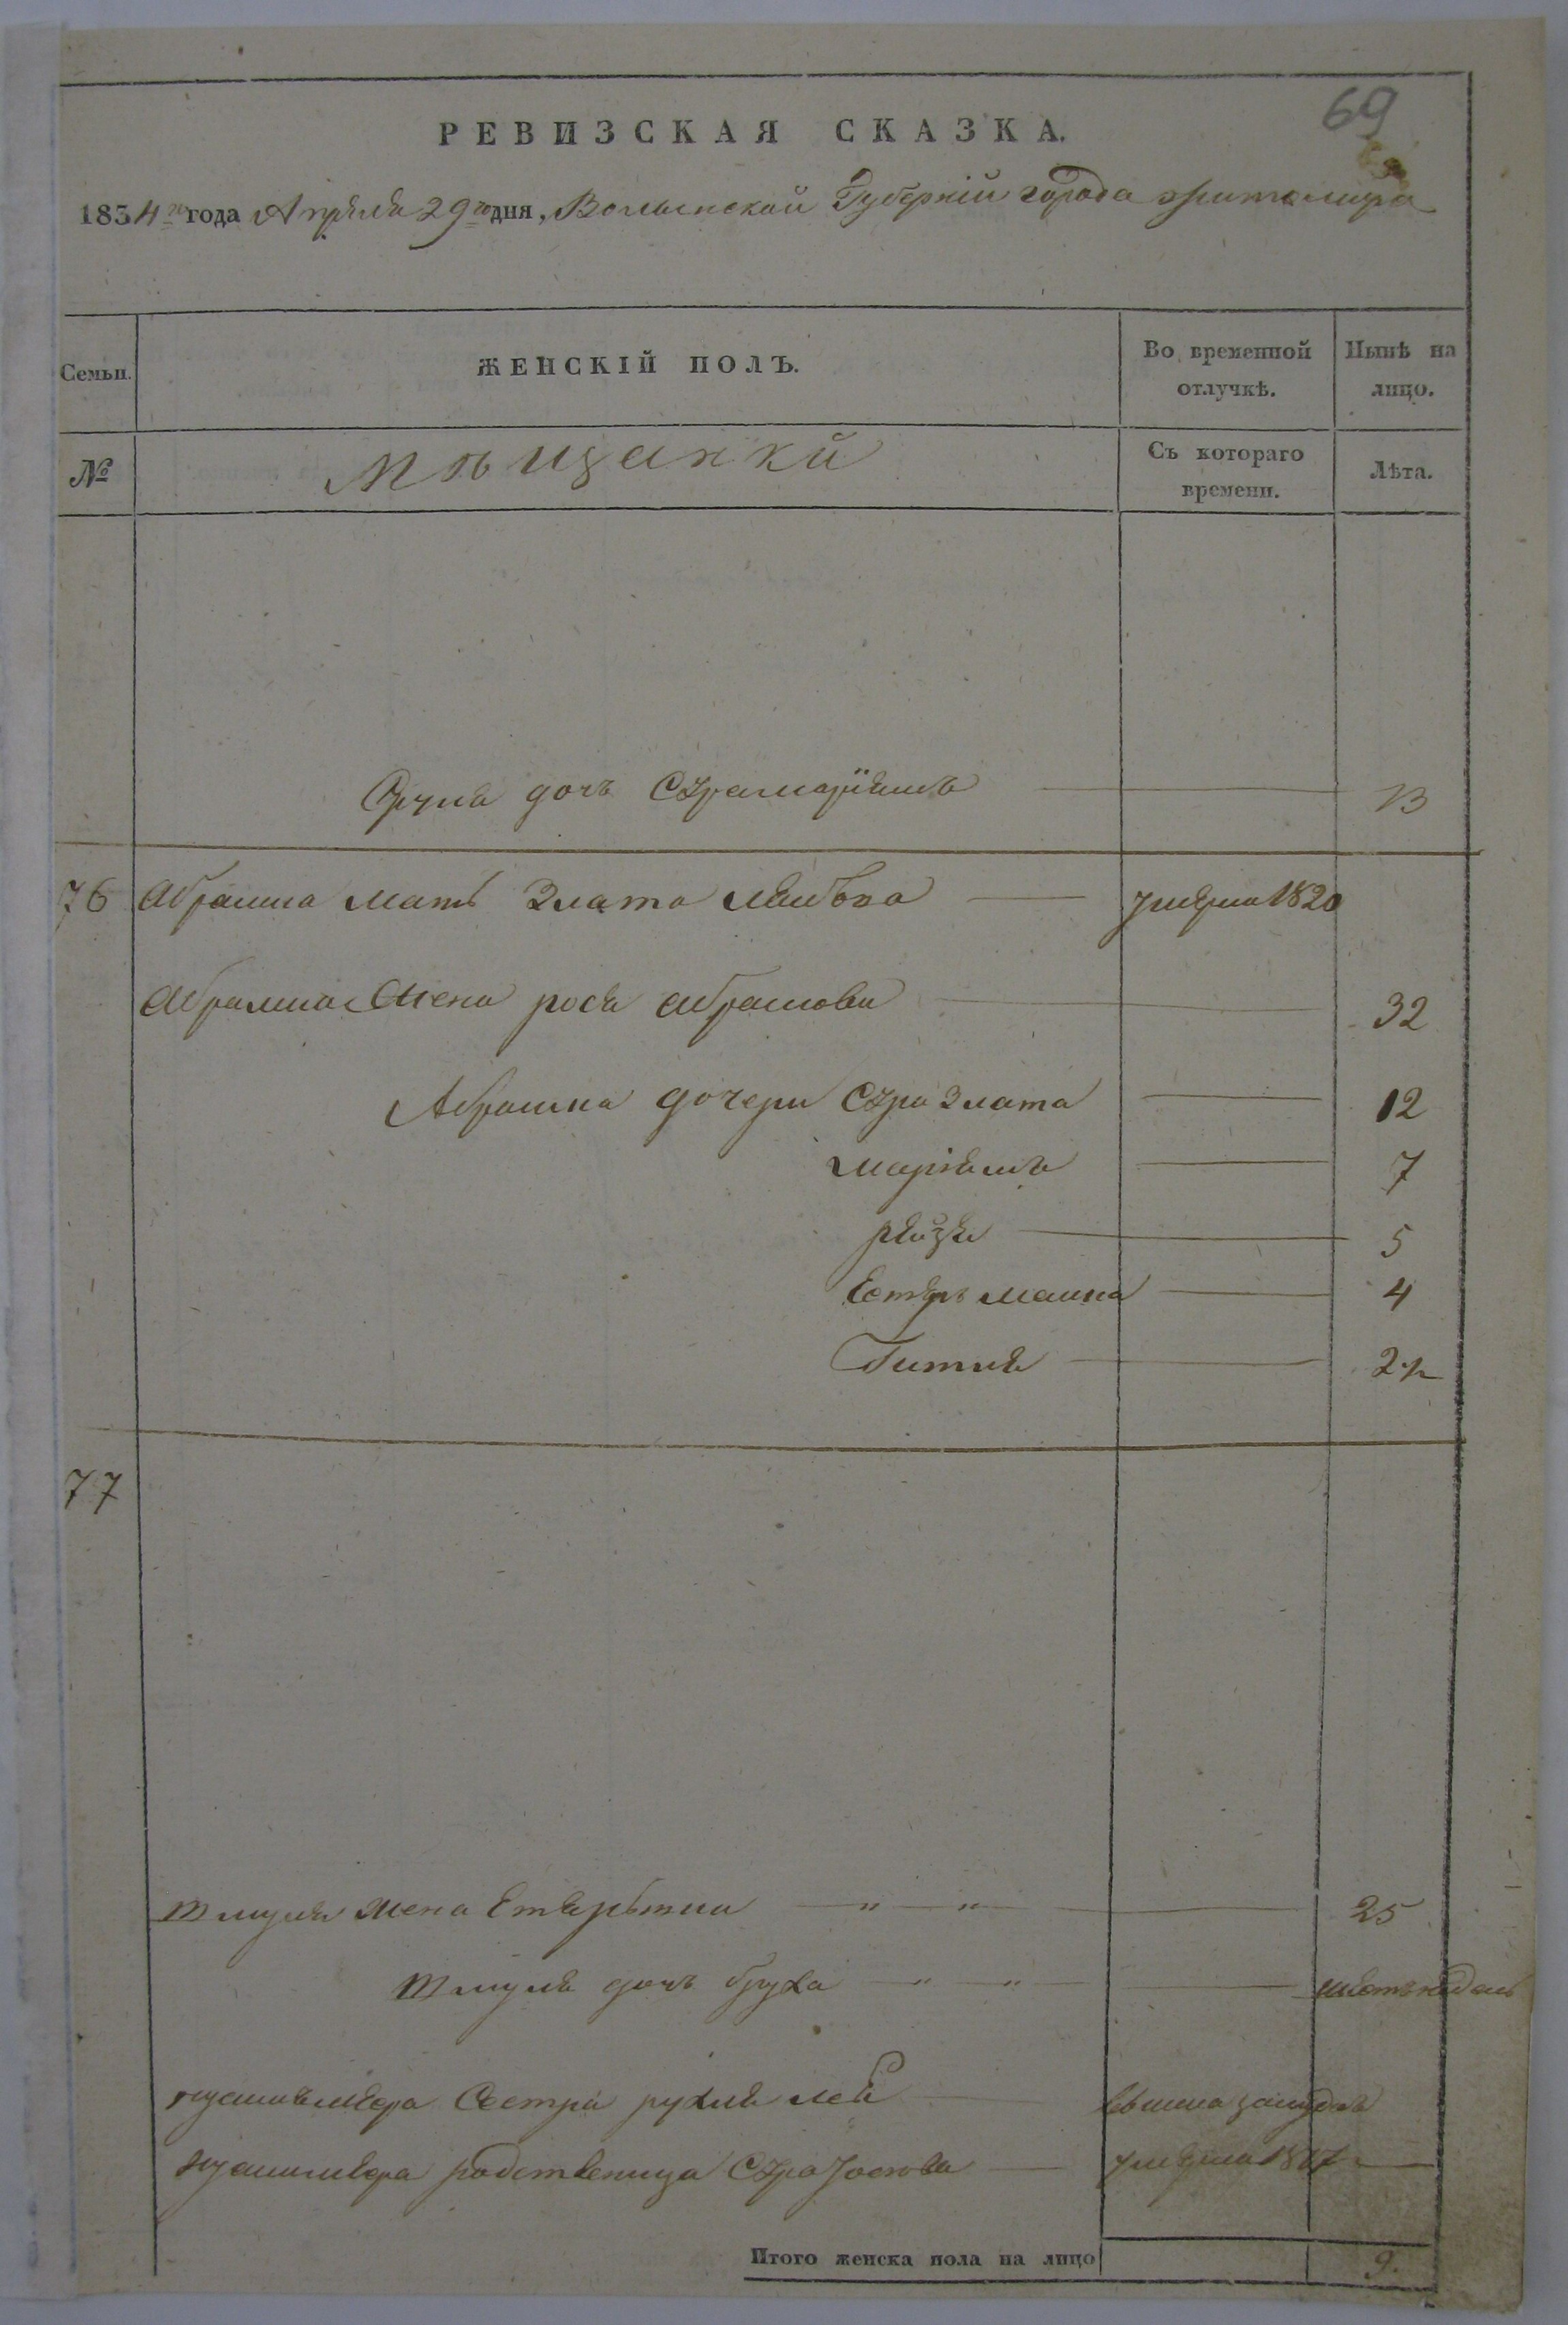 69
РЕВИЗСКАЯ СКАЗКА.
1834го года Апреля 29го дня, Волынской Губерніи города Житомира
Семьи. ЖЕНСКІЙ ПОЛЪ. Во временной отлучкѣ. Нынѣ на лицо.
№ Мѣщанки Съ котораго времени. Лѣта.
дочь Сурамаріемъ 13
76 Абрама мать Злата умерла 1820
Абрама жена рося Абрамова 32
Абрама дочери Сура Злата 12
Маріемъ 7
рейзя 5
Естеръ малка 4
Гитля 2
77
Шмуля жена 25
Шмуля дочь бруха шесть недель
сестра рухля лея вышла замужъ
родственица Сура Иоснова умерла 1817
Итого женска пола на лицо 9.